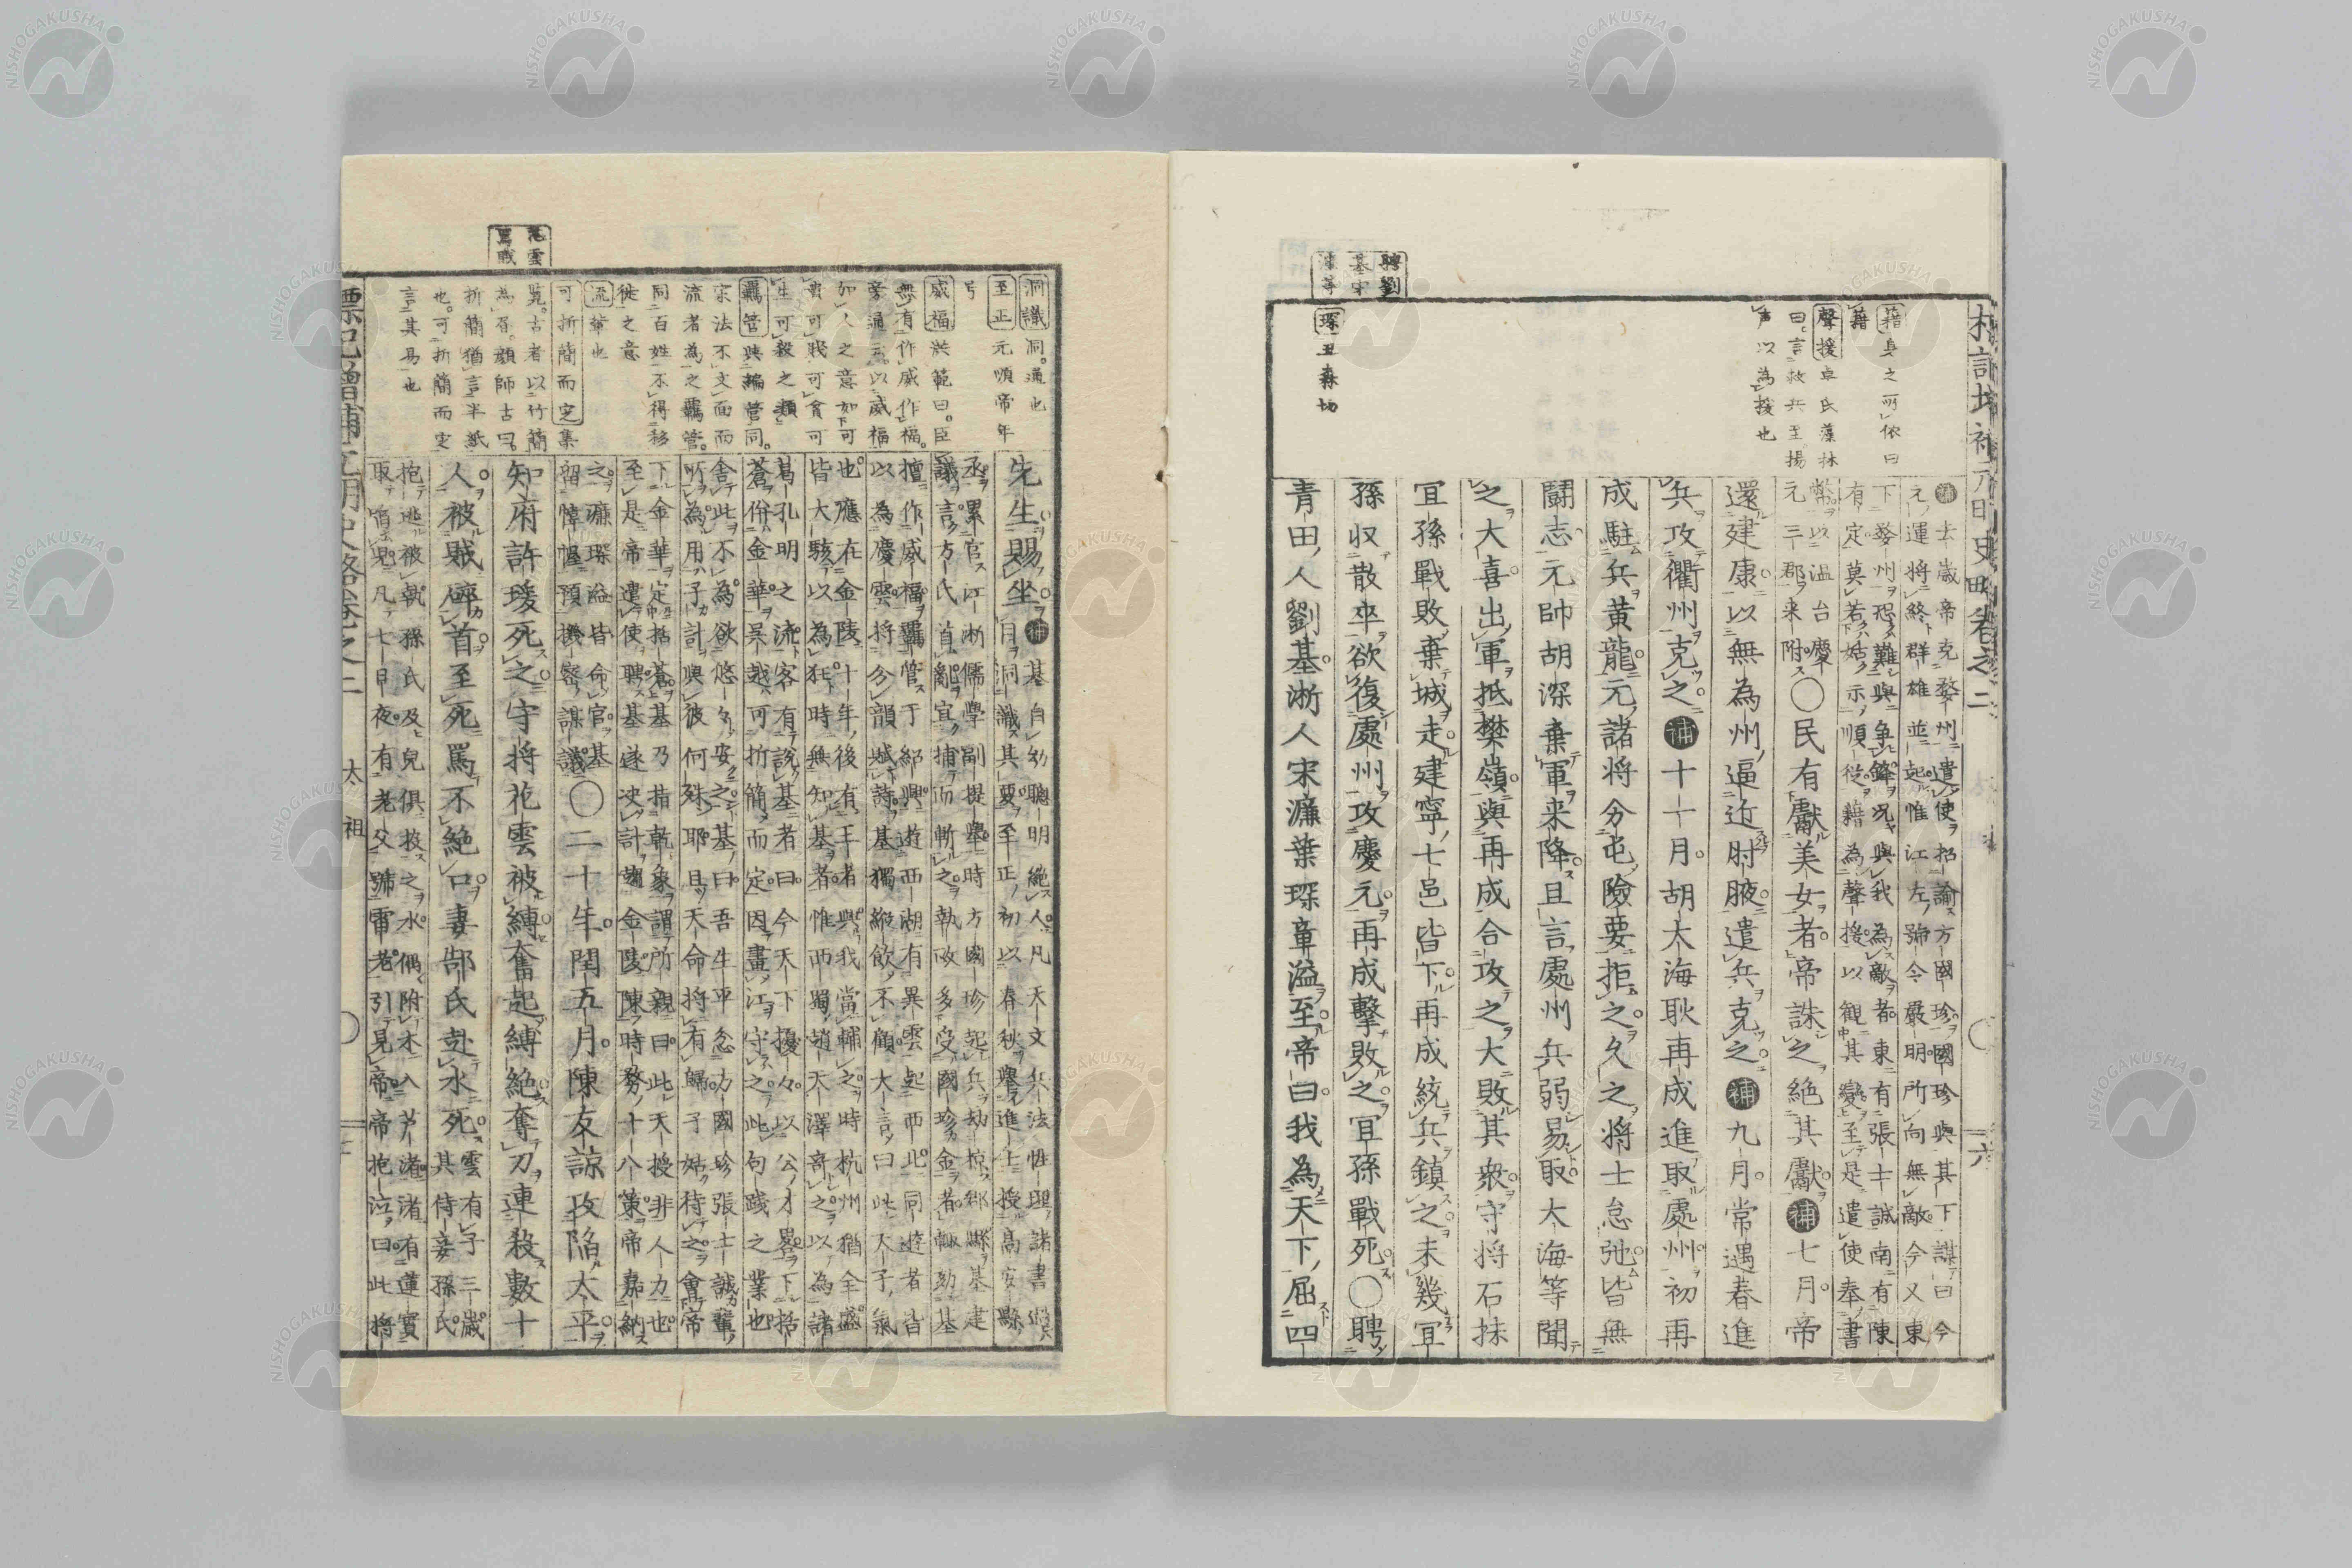 標記増補元明史略巻之二
六
聘劉
基宋
濂等
藉 身之所依曰
藉
聲援 卓氏藻林
曰。言救兵至揚
声以為援也
琛 丑森切
補去歳帝克婺州遣使招諭方國珍國珍與其下謀曰今
元運將終群雄並起惟江左號令嚴明所向無敵今又東
下婺州恐難與争鋒况與我為敵者東有張士誠南有陳
有定莫若姑示順從藉為聲援以觀其變至是遣使奉書
幣以温台慶
元三郡来附
○民有獻美女者帝誅之絶其獻補七月帝
還建康以無為州逼近肘腋遣兵克之補九月常遇春進
兵攻衢州克之補十一月胡大海耿再成進取處州初再
成駐兵黄龍元諸将分屯險要拒之久之将士怠弛皆無
鬪志元帥胡深棄軍来降且言處州兵弱易取大海等聞
之大喜出軍抵樊嶺與再成合攻之大敗其衆守将石抹
宜孫戰敗棄城走建寧七邑皆下再成統兵鎮之未幾宜
孫收散卒欲復處州攻慶元再成擊敗之宜孫戰死○聘
青田人劉基浙人宋濂葉琛章溢至帝曰我為天下屈四
花雲
罵賊
洞識 洞。通也
至正 元順帝年
号
威福 洪範曰。臣
無有作威作福。
旁通云。以威福
加人之意如可
貴可賤可貧可
生可殺之類
羈管 與編管同。
宋法不文面而
流者為之羈管。
同百姓不得移
徙之意
流 輩也
可折簡而定 集
覧。古者以竹簡
為書。顔師古曰。
折簡猶言半紙
也。可折簡而定
言其易也
先生賜坐補基自幼聰明絶人凡天文兵法性理諸書過
目洞識其要至正初以春秋擧進士授高安縣
丞累官江浙儒學副提擧時方國珍起兵劫掠郡縣基建
議言方氏首亂宜捕而斬之執政多受國珍金者輒劾基
擅作威福羈管于紹興遊西湖有異雲起西北同遊者皆
以為慶雲將分韻賦詩基獨縱飲不顧大言曰此天子氣
也應在金陵十年後有王者興我當輔之時杭州猶全盛
皆大駭以為狂時無知基者惟西蜀趙天澤奇之以為諸
葛孔明之流客有説基者曰今天下擾々以公才畧下括
蒼併金華呉越可折簡而定因畫江守之此句踐之業也
舎此不為欲悠々安之基曰吾生平忿方國珍張士誠輩
所為用子計與彼何殊耶且天命将有歸子姑待之會帝
下金華定括蒼基乃指乾象謂所親曰此天授非人力也
至是帝遣使聘基遂决計趨金陵陳時務十八策帝嘉納
之濂琛溢皆命官基
留幃幄預機密謀議
○二十年閏五月陳友諒攻陷太平
知府許瑗死之守将花雲被縛奮起縛絶奪刀連殺數十
人被賊碎首至死罵不絶口妻郜氏赴水死雲有子三歳
其侍妾孫氏
抱逃被執孫氏及兒倶投之水偶附木入芦渚渚有蓮實
取啗兒凡七日夜有老父號雷老引見帝帝抱泣曰此将
標記増補元明史略巻之二
太祖